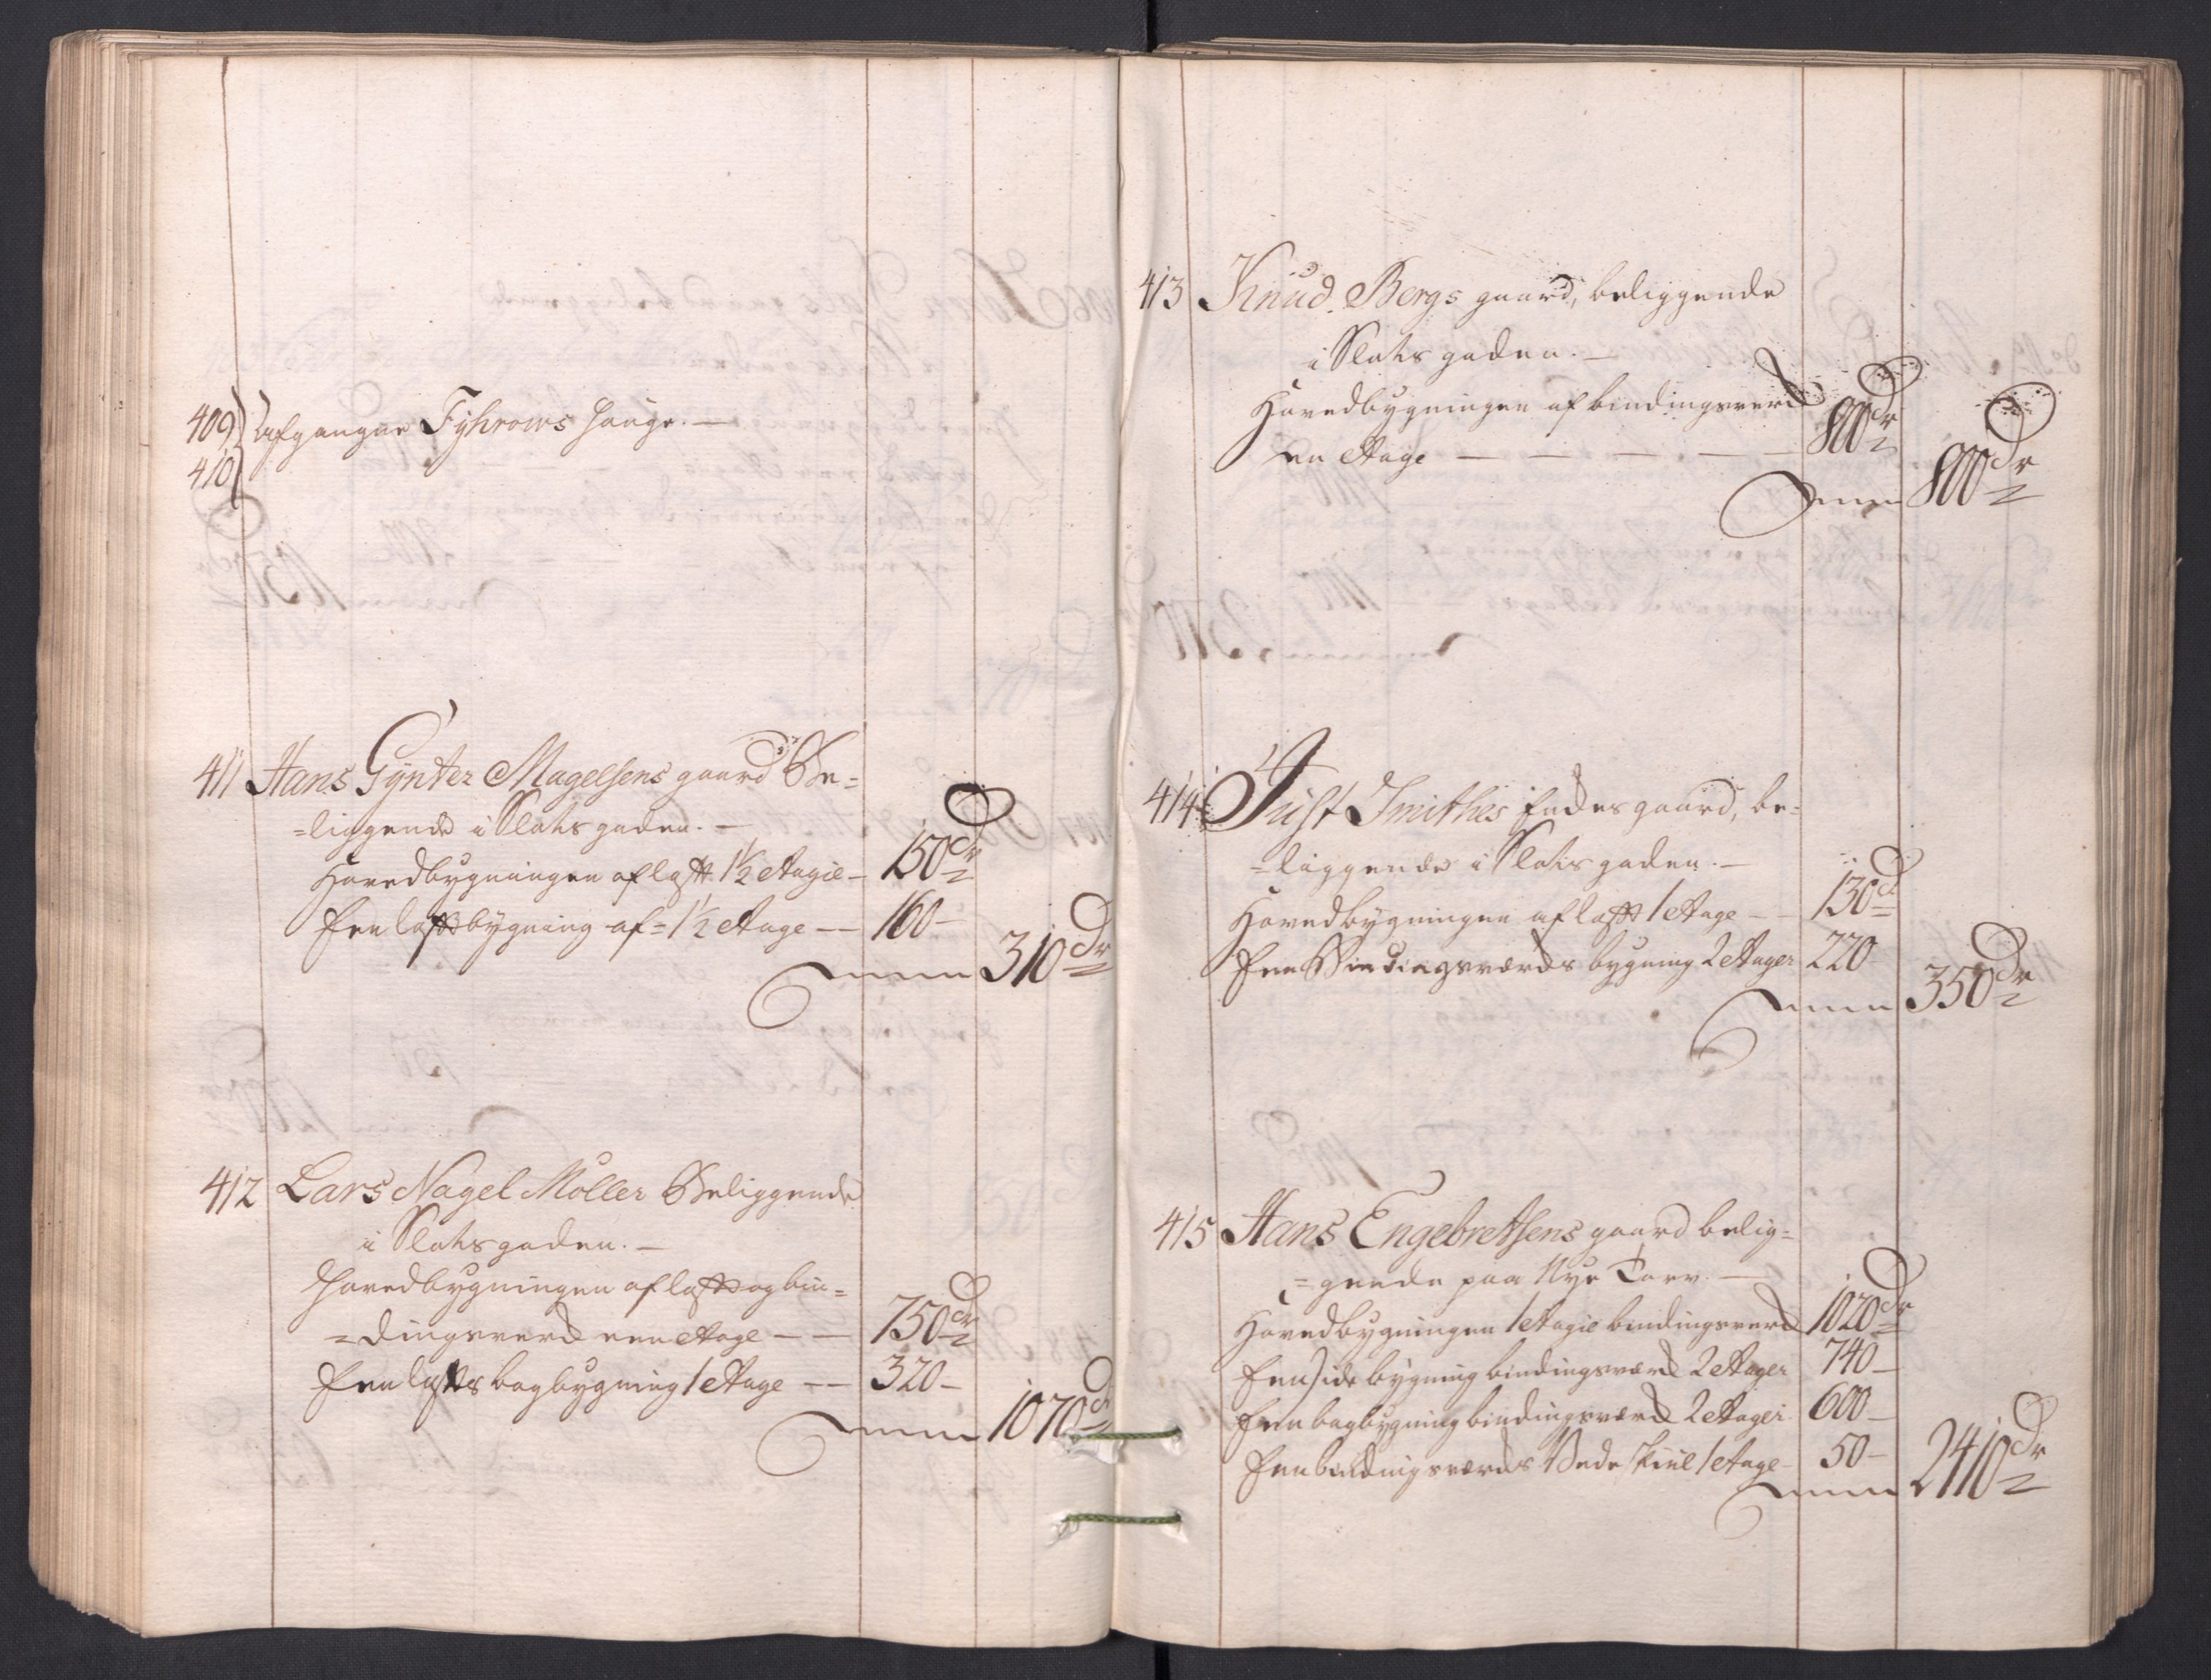 409)
410) afgangne Fyhrows Hauge. —
411 Hans Gynter Magelsens gaard Be-
=liggende i Slots gaden. —
Hovedbygningen af laft 1½ Etagie — 150 dr
Een lafte bygning af = 1½ Etage — 160 —
310 dr
412 Lars Nagel Möller Beliggende
i Slots gaden. —
Hovedbygningen af laft og bin=
=dingsverd een Etage — — 750 dr
Een lafte bagbygning 1 Etage — — 320 —
1070 dr
413 Knud Bergs gaard, beliggende
i Slots gaden. —
Hovedbygningen af bindingsverd
en Etage — — — — — 800 dr
800 dr
414 Just Smithes Endes gaard, be=
=liggende i Slots gaden. —
Hovedbygningen af laft 1 Etage — — 130 d
Een Bindingsværds bygning 2 Etager 220
350 dr
415 Hans Engebretsens gaard belig=
=gende paa Nye Torv. —
Hovedbygningen 1 Etagie bindingsverd 1020 dr
Een Side bygning bindingsværd 2 Etager 740 —
Een bagbygning bindingsværd 2 Etager 600 —
Een bindingsværds Vede skiul 1 Etage — 50 —
2410 dr